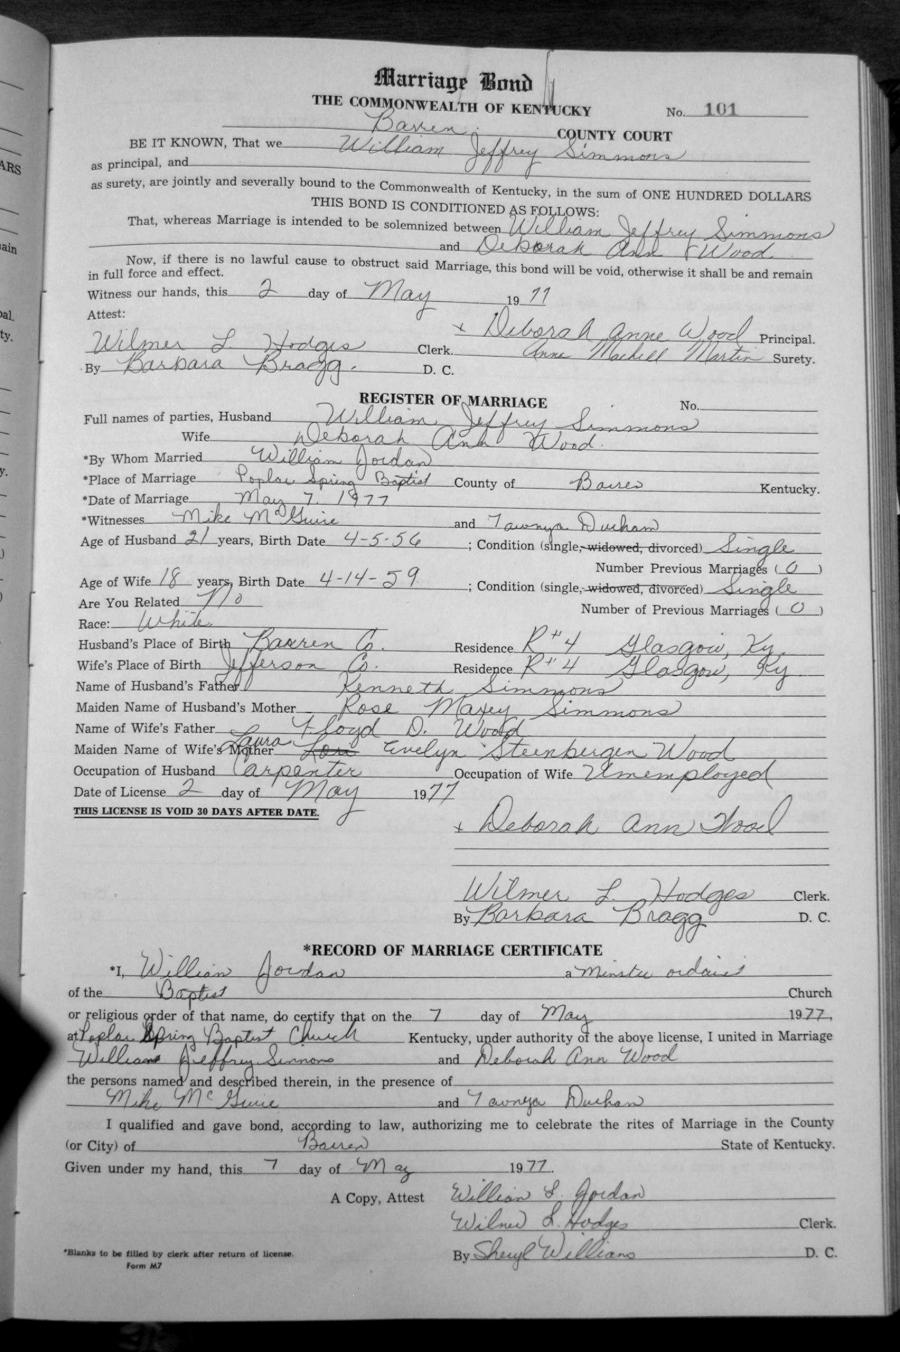 Marriage Bond
THE COMMONWEALTH OF KENTUCKY No. 101
Barren COUNTY COURT
BE IT KNOWN, That we William Jeffrey Simmons
as principal, and
as surety, are jointly and severally bound to the Commonwealth of Kentucky, in the sum of ONE HUNDRED DOLLARS
THIS BOND IS CONDITIONED AS FOLLOWS:
That, whereas Marriage is intended to be solemnized between William Jeffrey Simmons
and Deborah Ann Wood
Now, if there is no lawful cause to obstruct said Marriage, this bond will be void, otherwise it shall and remain
in full force and effect.
Witness our hands, this 2 day of May 1977
Attest:
x Deborah Anne Wood Principal.
Wilmer L. Hodges Clerk. Anne Martin Surety.
By Barbara Bragg. D. C.
REGISTER OF MARRIAGE
Full names of parties, Husband William Jeffrey Simmons No.
Wife Deborah Ann Wood.
*By Whom Married William Jordan
*Place of Marriage Poplar Spring Baptist County of Barren Kentucky.
*Date of Marriage May 7, 1977
*Witnesses Mike McGuire and Tawnya Durham
Age of Husband 21 years, Birth Date 4-5-56 ; Condition (single, widowed, divorced) Single
Number Previous Marriages (0)
Age of Wife 18 years, Birth Date 4-14-59 ; Condition (single, widowed, divorced) Single
Are You Related No Number of Previous Marriages (0)
Race: White
Husband's Place of Birth Barren Co. Residence R#4 Glasgow, Ky.
Wife's Place of Birth Jefferson Co. Residence R#4 Glasgow, Ky
Name of Husband's Father Kenneth Simmons
Maiden Name of Husband's Mother Rose Maxey Simmons
Name of Wife's Father Floyd D. Wood
Maiden Name of Wife's Mother Laura Evelyn Steenbergen Wood
Occupation of Husband Carpenter Occupation of Wife Unemployed
Date of License 2 day of May 1977
THIS LICENSE IS VOID 30 DAYS AFTER DATE.
x Deborah Ann Wood
Wilmer L. Hodges Clerk.
By Barbara Bragg D. C.
*RECORD OF MARRIAGE CERTIFICATE
*I, William Jordan a
of the Baptist Church
or religious order of that name, do certify that on the 7 day of May 1977,
at Poplar Spring Baptist Church Kentucky, under authority of the above license, I united in Marriage
William Jeffrey Simmons and Deborah Ann Wood
the persons named and described therein, in the presence of
Mike McGuire and Tawnya Durham
I qualified and gave bond, according to law, authorizing me to celebrate the rites of Marriage in the County
(or City) of Barren State of Kentucky.
Given under my hand, this 7 day of May 1977.
A Copy, Attest William L. Jordan
Wilmer L. Hodges Clerk.
By Sheryl Williams D. C.
*Blanks to be filled by clerk after return of license.
Form M7